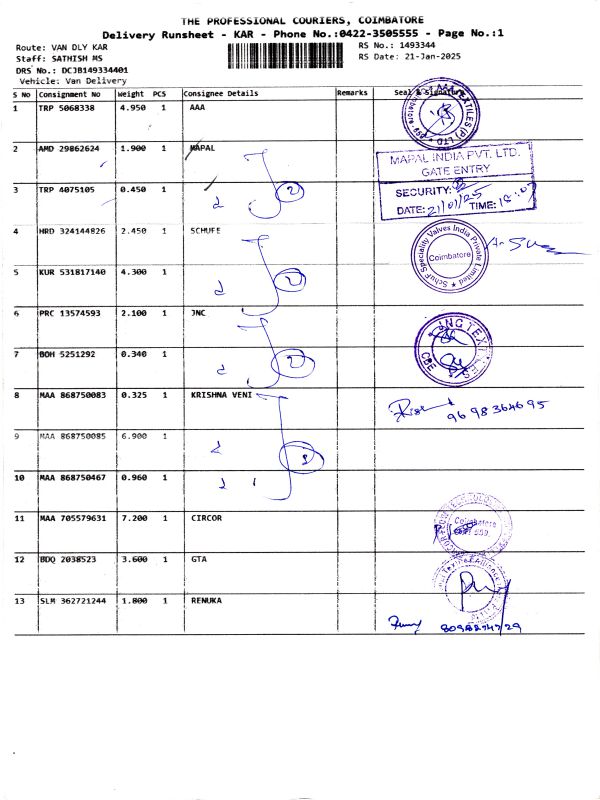 THE PROFESSIONAL COURIERS, COIMBATORE
Delivery Runsheet - KAR - Phone No.:0422-3505555 - Page No.:1
Route: VAN DLY KAR
RS No.: 1493344
Staff: SATHISH MS
RS Date: 21-Jan-2025
DRS No.: DCJB149334401
Vehicle: Van Delivery
S No Consignment No Weight PCS Consignee Details Remarks Seal & Signature
1 TRP 5068338 4.950 1 AAA
2 AMD 29862624 1.900 1 MAPAL
MAPAL INDIA PVT. LTD.
GATE ENTRY
3 TRP 4075105 0.450 1 2
SECURITY:
DATE: 21/01/25 TIME: 18:07
4 HRD 324144826 2.450 1 SCHUFE
SchuF Speciality Valves India Private Limited
Coimbatore
5 KUR 531817140 4.300 1 2
6 PRC 13574593 2.100 1 JNC
CBE
7 BOH 5251292 0.340 1 2
8 MAA 868750083 0.325 1 KRISHNA VENI
9698364695
9 MAA 868750085 6.900 1
10 MAA 868750467 0.960 1
11 MAA 705579631 7.200 1 CIRCOR
Coimbatore
12 BDQ 2038523 3.600 1 GTA
13 SLM 362721244 1.800 1 RENUKA